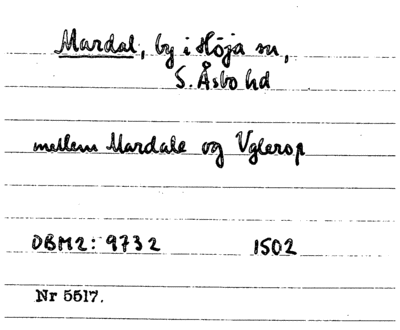 Mardal, by i Höja sn,
S. Åsbo hd
mellem Mardale og Vglerop
DBM2: 9732 1502
Nr 5517.